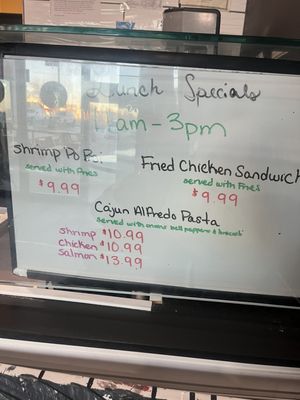 Lunch Specials
11am - 3pm
Shrimp Po Boi
served with fries
$9.99
Fried Chicken Sandwich
served with fries
$9.99
Cajun Alfredo Pasta
served with onions bell peppers & broccoli
shrimp $10.99
chicken $10.99
salmon $13.99